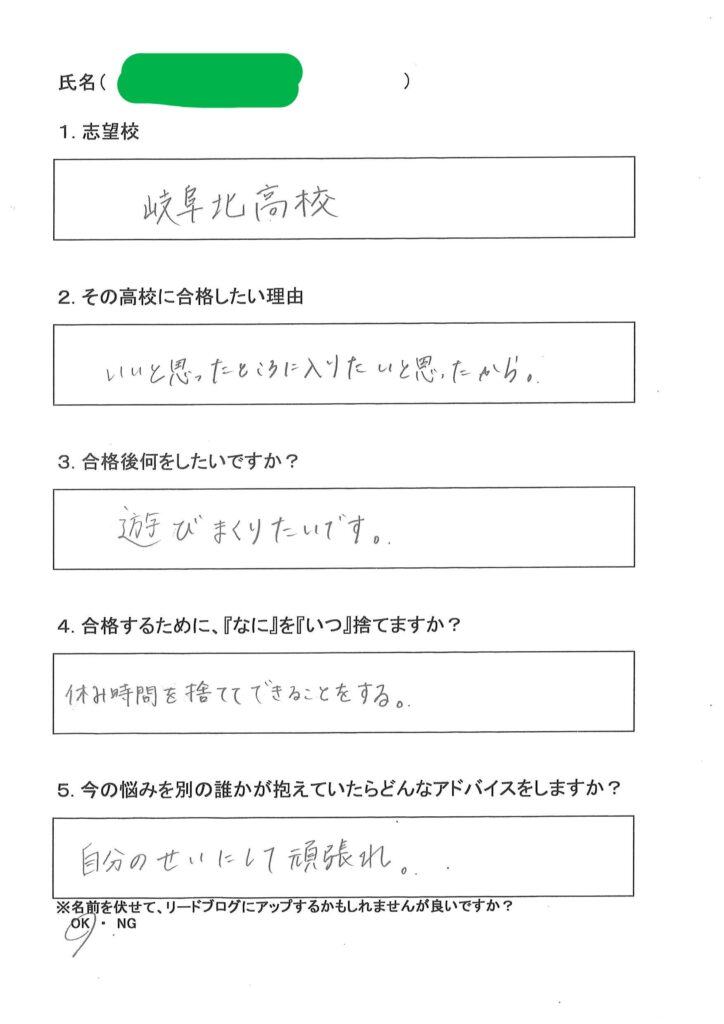 氏名( )
1. 志望校
岐阜北高校
2. その高校に合格したい理由
いいと思ったところに入りたいと思ったから。
3. 合格後何をしたいですか?
遊びまくりたいです。
4. 合格するために、『なに』を『いつ』捨てますか?
休み時間を捨ててできることをする。
5. 今の悩みを別の誰かが抱えていたらどんなアドバイスをしますか?
自分のせいにして頑張れ。
※名前を伏せて、リードブログにアップするかもしれませんが良いですか?
OK ・ NG